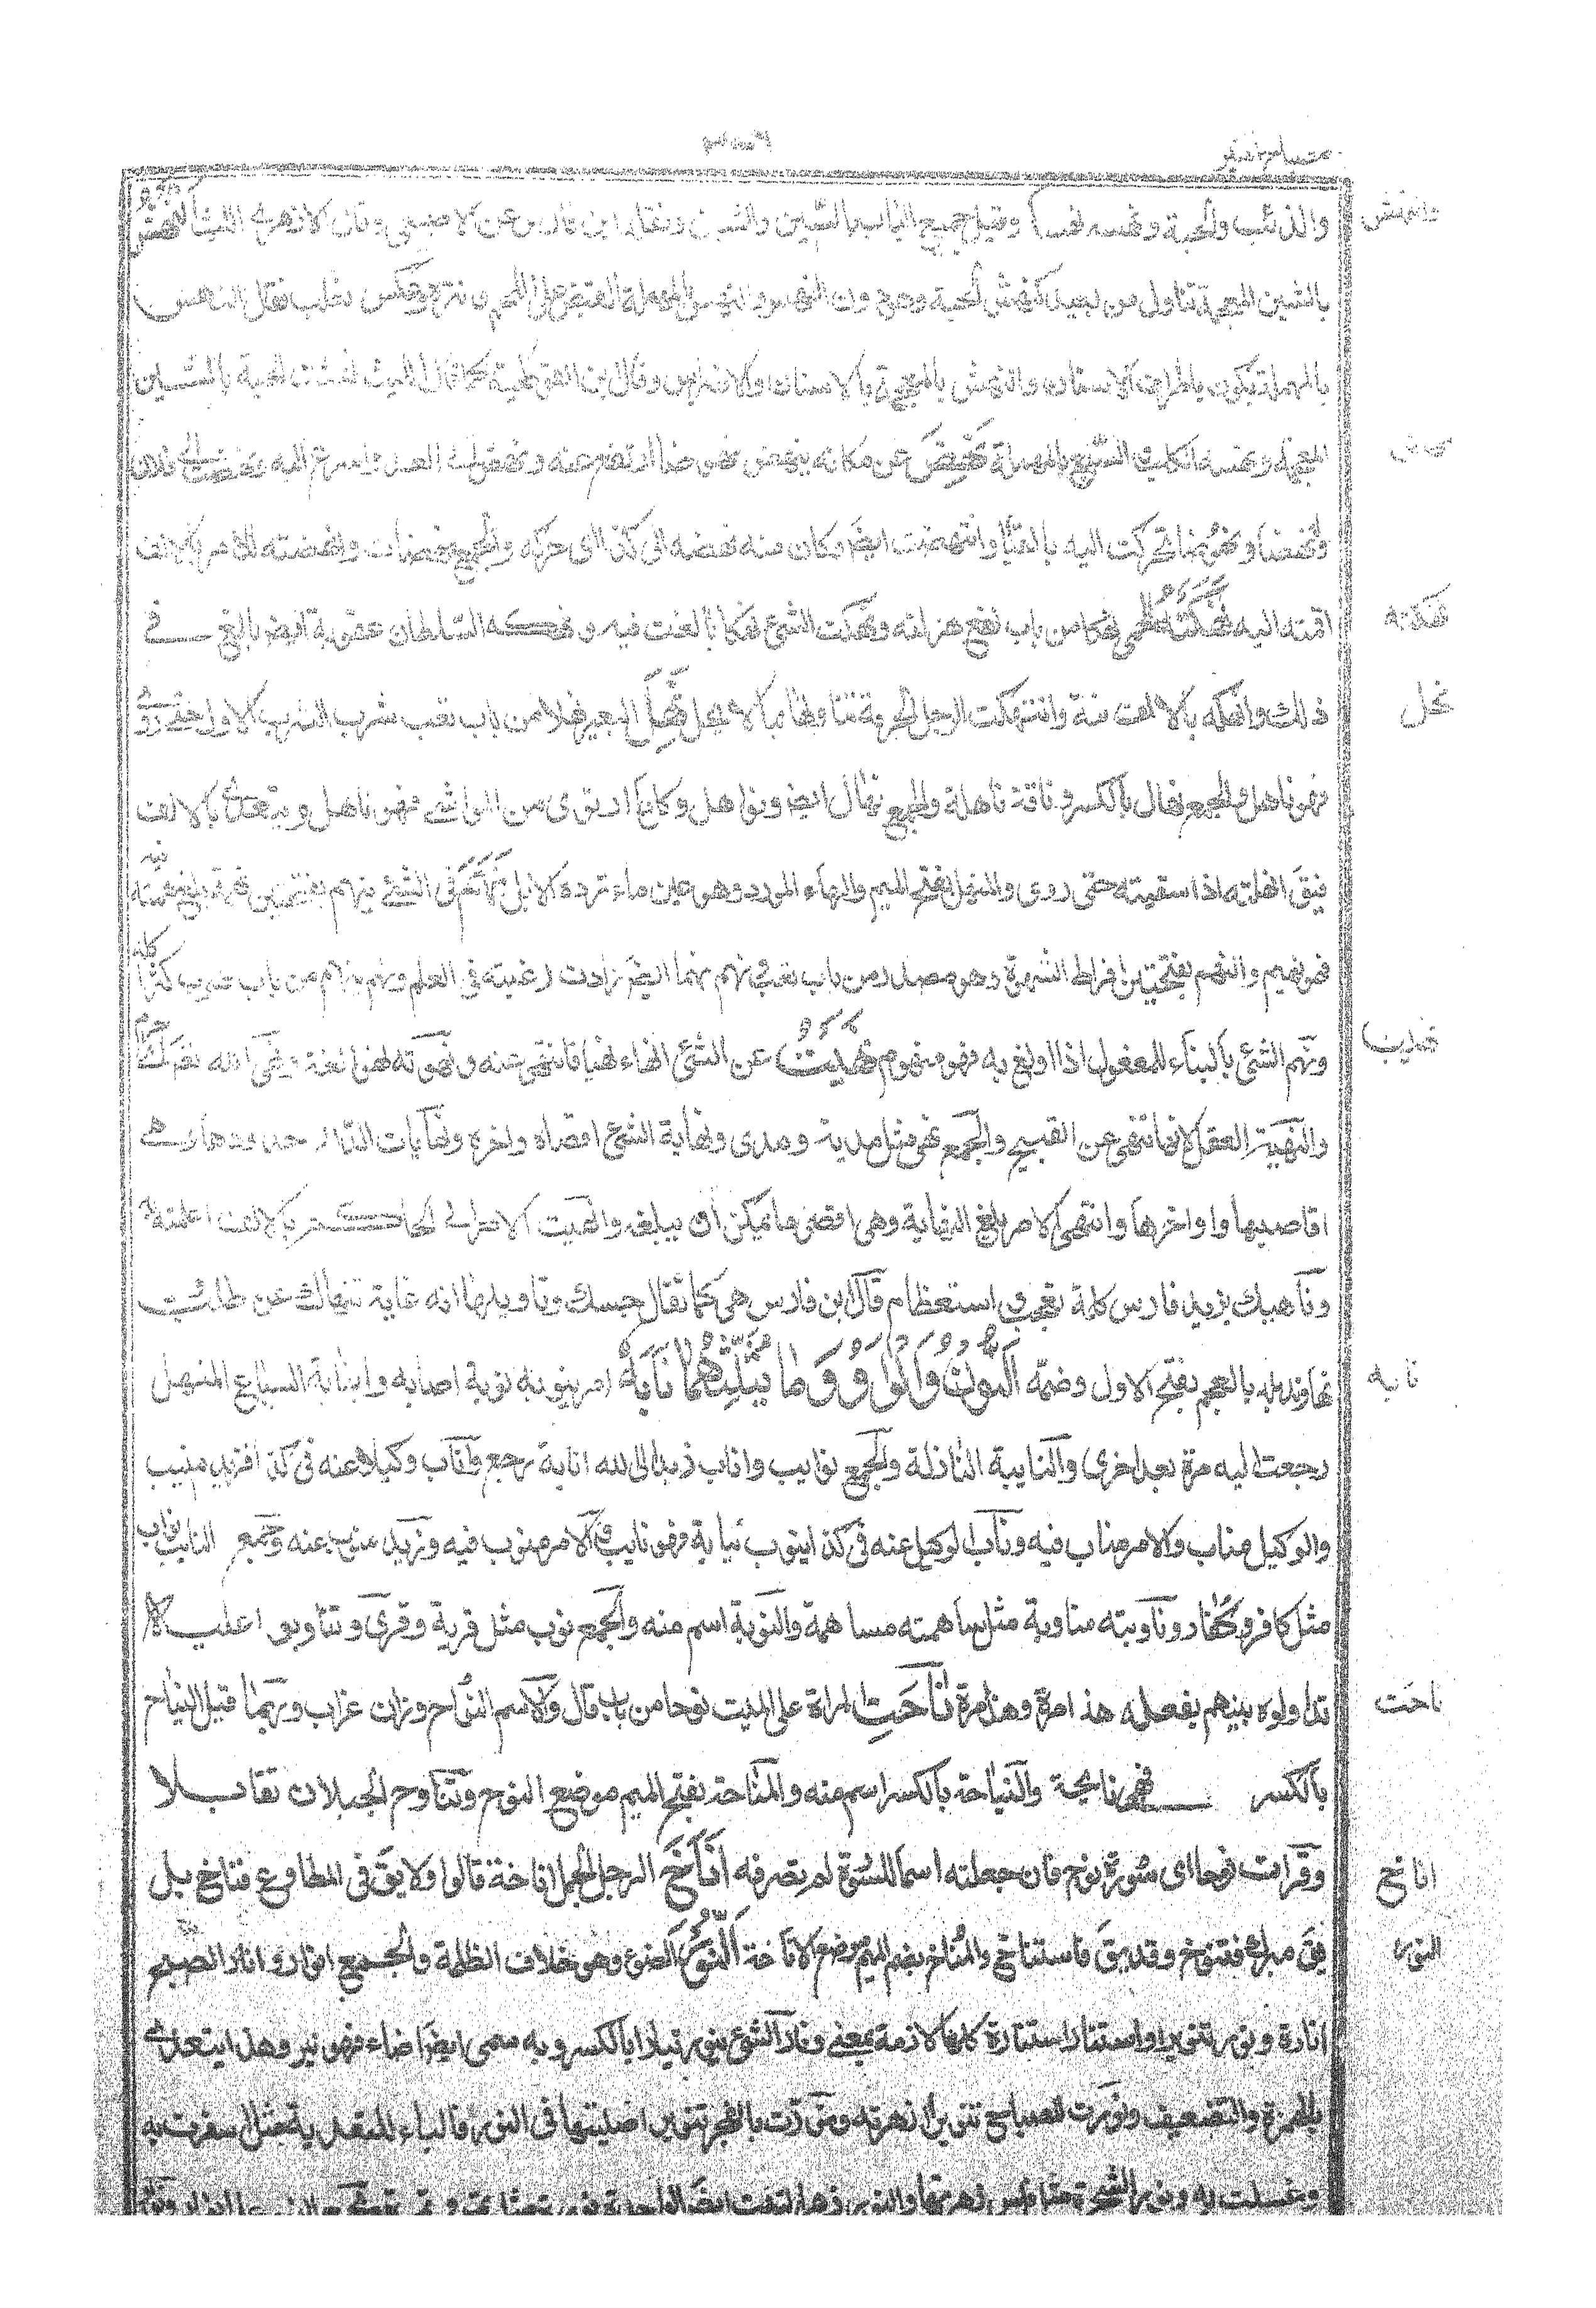 مصباح المنير
والذئب والحية ونهسه نهسا وقيل جميع الباب بالسين والشين ونقله ابن فارس عن الاصمعي وقال الازهري قال الليث النهش
وانهش
بالشين المعجمة تناول من بعيد كنهش الحية وهو دون النهس والنهس بالمهملة القبض على اللحم ونتره وعكس ثعلب فقال النهس
بالمهملة يكون باطراف الاسنان والنهش بالمعجمة بالاسنان والاضراس وقال ابن القوطية كما قال الليث نهشته الحية بالشين
المعجمة ونهسه الكلب والسبع بالمهملة نهض عن مكانه ينهض نهوضا ارتفع عنه ونهض الى العدو اسرع اليه ونهضت الى فلان
وله نهضا ونهوضا تحركت اليه بالقيام وانتهضت ايضا وكان منه نهضة الى كذا اى حركة والجمع نهضات وانهضته للامر بالالف
اقمته اليه نهكته الحمى نهكا من باب نفع هزلته ونهكت الشئ نهكا بالغت فيه ونهكه السلطان عقوبة ايضا بالغ في
نهكته
ذلك وانهكه بالالف لغة وانتهك الرجل الحرمة تناولها بما لا يحل نهل البعير نهلا من باب تعب شرب الشرب الاول حتى روى
نهل
فهو ناهل والجمع نهال بالكسر وناقة ناهلة والجمع نهال ايضا ونواهل وكل ما ارتوى من المواشى فهو ناهل ويتعدى بالالف
فيق انهلته اذا سقيته حتى روى والمنهل بفتح الميم والهاء المورد وهو عين ماء ترده الابل نهم فى الشئ ينهم بفتحتين نهمة بلغ همته فيه
فهو نهيم والنهم بفتحتين افراط الشهوة وهو مصدر من باب تعب ونهم نهما ايضا زادت رغبته فى العلم ونهم ينهم من باب ضرب كثر اكله
ونهم الشئ بالبناء للمفعول اذا اولع به فهو منهوم نهيت عن الشئ انهاه نهيا فانتهى عنه ونهوته نهوا لغة ونهى الله تعالى اى حرم
نهيت
والنهية العقل لانها تنهى عن القبيح والجمع نهى مثل مدية ومدى ونهاية الشئ اقصاه واخره ونهايات الدار حدودها وهى
اقاصيها واواخرها وانتهى الامر بلغ النهاية وهى اقصى ما يمكن ان يبلغه وانهيت الامر الى الحاكم بالالف اعلمته به
وناهيك بزيد فارس كلمة تعجب واستعظام قال ابن فارس هى كما يقال حسبك وتاويلها انه غاية تنهاك عن طلب
نهاوند بلد بالعجم بفتح الاول وضمه النون والواو وما يثلثهما نابه امر ينوبه نوبة اصابه وانتابت السباع المنهل
نابه
رجعت اليه مرة بعد اخرى والنايبة النازلة والجمع نوايب واناب زيد الى الله انابة رجع واناب وكيلا عنه فى كذا فزيد منيب
والوكيل مناب والامر مناب فيه وناب الوكيل عنه فى كذا ينوب نيابة فهو نايب والامر منوب فيه وزيد منوب عنه وجمع النايب نواب
مثل كافر وكفار وناوبته مناوبة مثل ساهمته مساهمة والنوبة اسم منه والجمع نوب مثل قرية وقرى وتناوبوا عليه
تداولوه بينهم يفعله هذا مرة وهذا مرة ناحت المراة على الميت نوحا من باب قال والاسم النواح وزان غراب وربما قيل النياح
ناحت
بالكسر فهى نايحة والنياحة بالكسر اسم منه والمناحة بفتح الميم موضع النوح وتناوح الجبلان تقابلا
وقرات نوحا اى سورة نوح فان جعلته اسما للسورة لم تصرفه اناخ الرجل الجمل اناخة قالوا ولا يق فى المطاوع فناخ بل
اناخ
يق فبرك وتنوخ وقد يق فاستناخ والمناخ بضم الميم موضع الاناخة النور الضوء وهو خلاف الظلمة والجمع انوار وانار الصبح
النور
انارة ونور تنويرا واستنار استنارة كلها لازمة بمعنى ونار الشئ ينور نيارا بالكسر وبه سمى ايضا اضاء فهو نير وهذا يتعدى
بالهمزة والتضعيف ونورت المصباح تنويرا ازهرته ونورت بالفجر تنويرا صليتها فى النور فالباء للتعدية مثل اسفرت به
وغلست به ونور الشجرة مثل فلس زهرها والنور زهر النبت ايضا الواحدة نورة